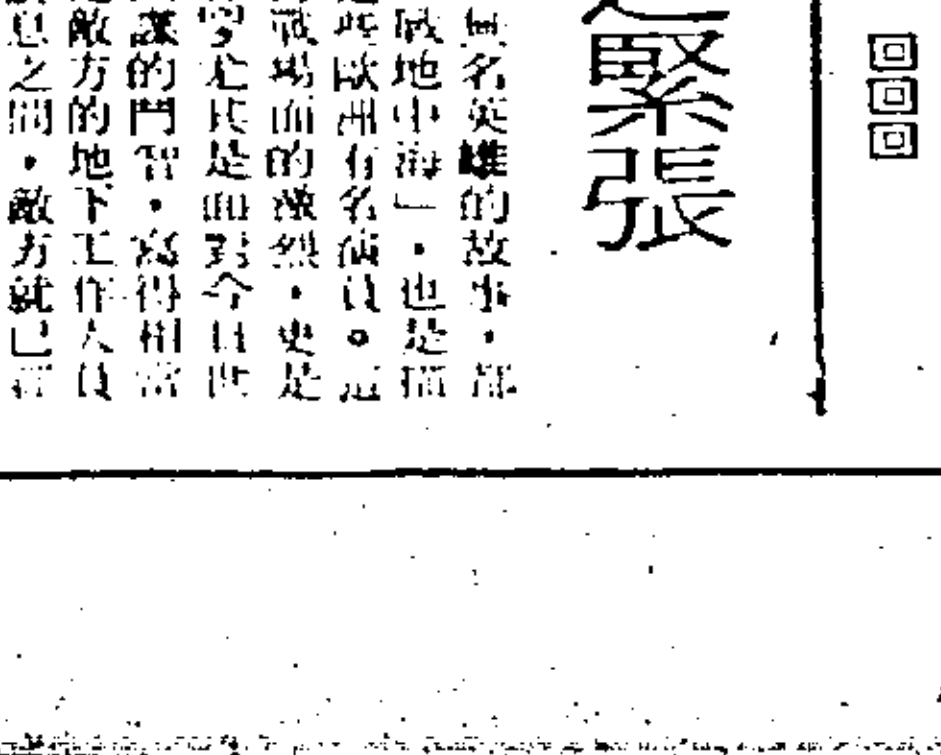 緊張
無名英雄的故事，都
戰地中海」，也是描
些歐洲有名演員。這
戰場面的激烈，更是
尤其是面對今日世
謀的鬥智，寫得相當
敵方的地下工作人員
息之間，敵方就已